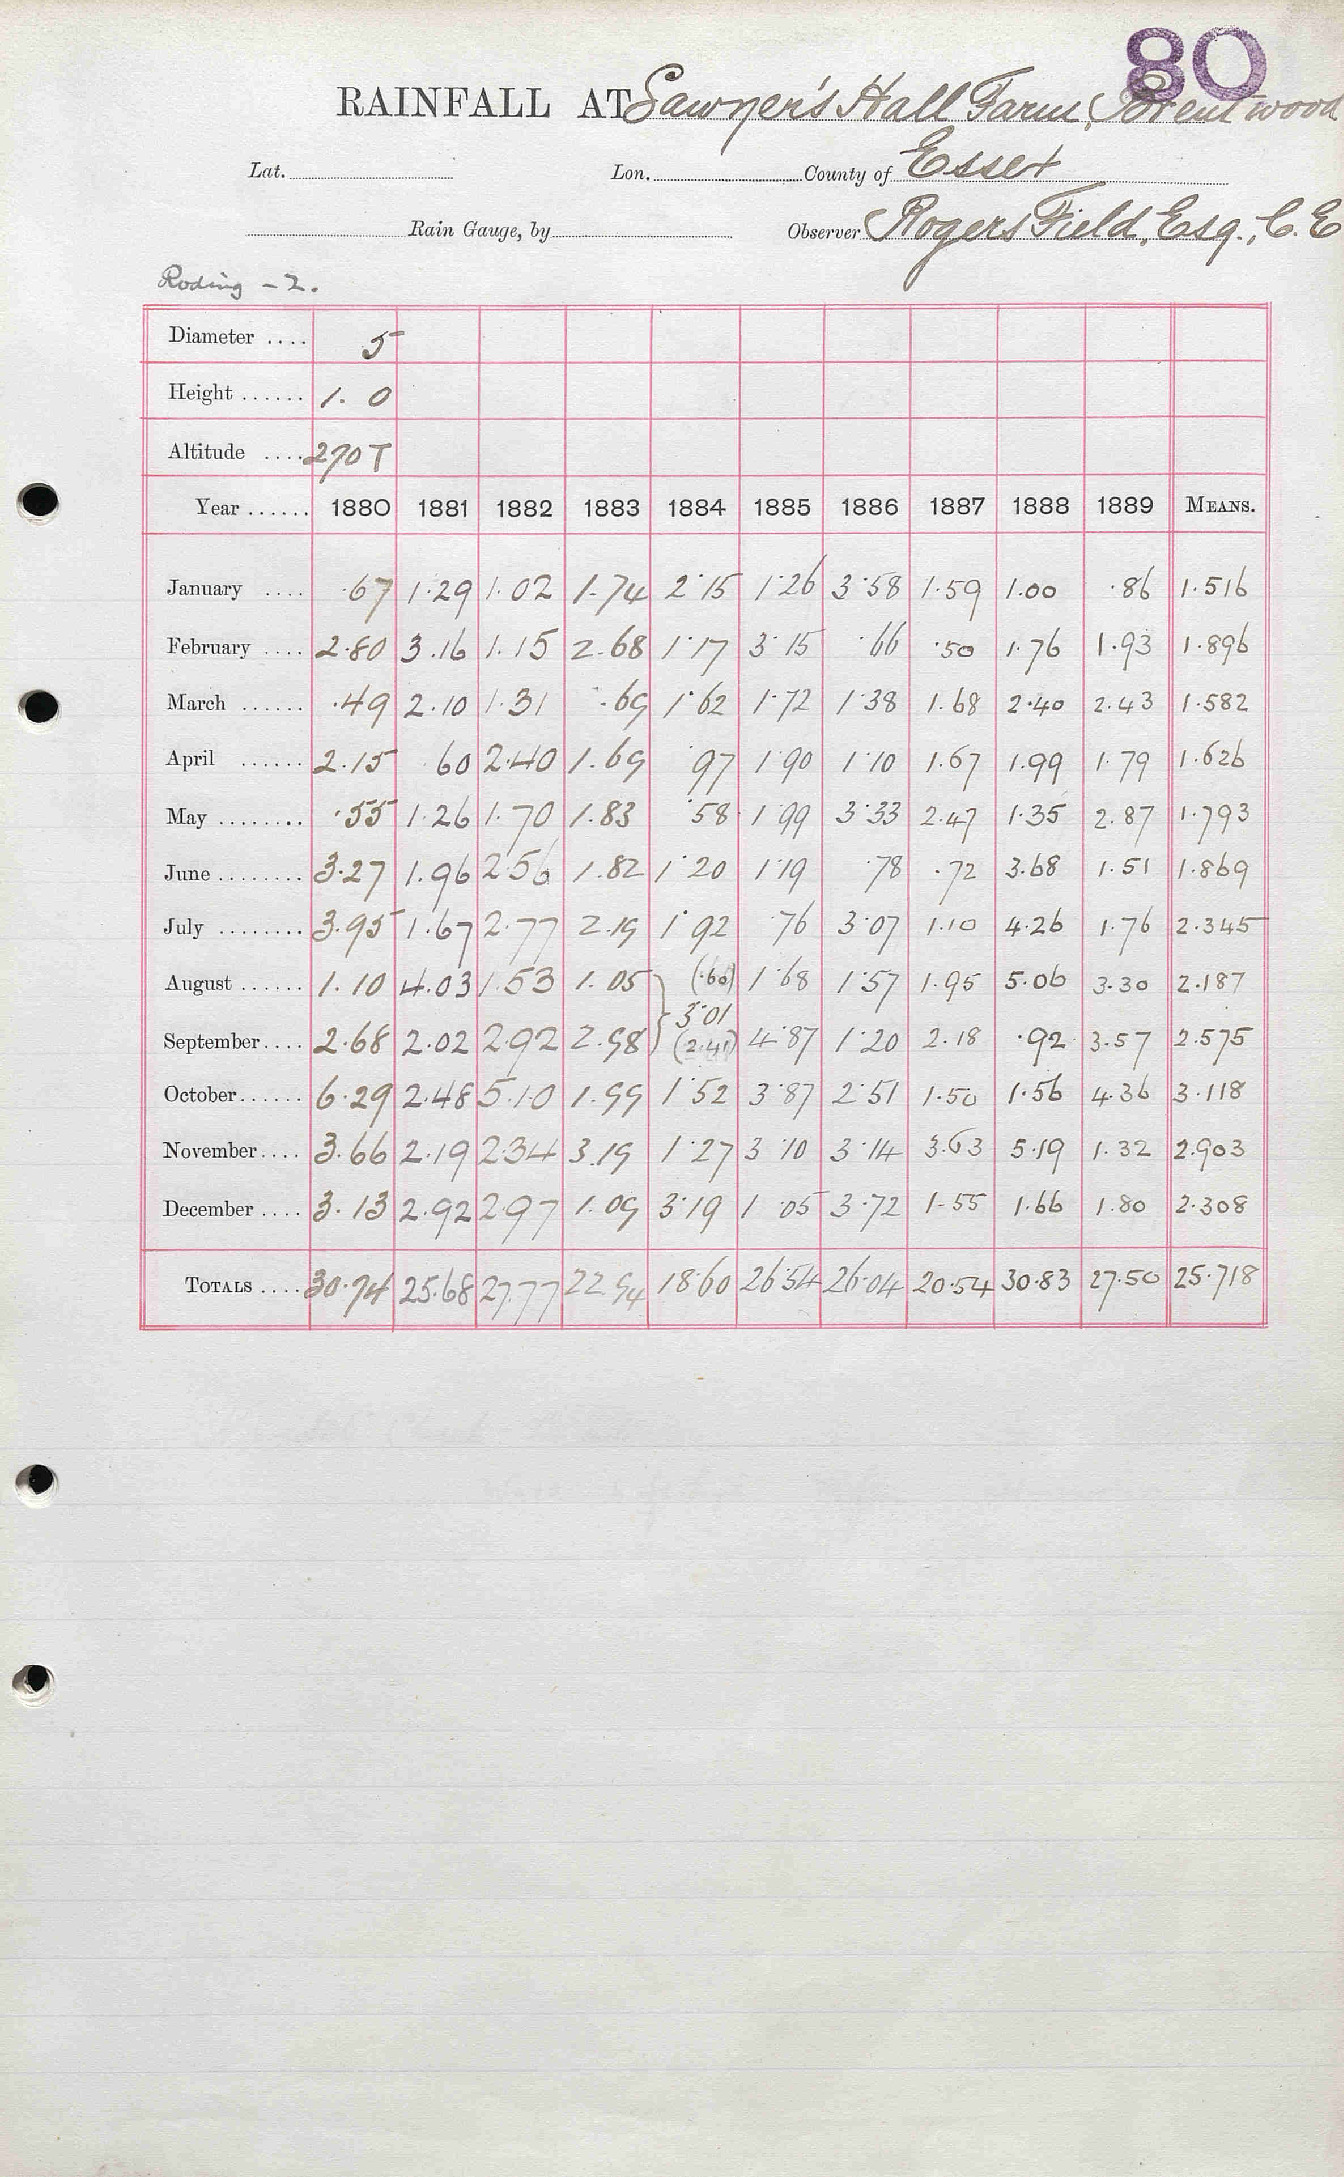 80
RAINFALL AT Sawyer's Hall Farm, Brentwood
Lat. Lon. County of Essex
Rain Gauge, by Observer Rogers Field, Esq., C.E
Roding - 2.
Diameter .... 5
Height ...... 1. 0
Altitude .... 270 T
Year ...... 1880 1881 1882 1883 1884 1885 1886 1887 1888 1889 MEANS.
January .... .67 1.29 1.02 1.74 2.15 1.26 3.58 1.59 1.00 .86 1.516
February .... 2.80 3.16 1.15 2.68 1.17 3.15 .66 .50 1.76 1.93 1.896
March ...... .49 2.10 1.31 .69 1.62 1.72 1.38 1.68 2.40 2.43 1.582
April ...... 2.15 60 2.40 1.69 .97 1.90 1.10 1.67 1.99 1.79 1.626
May ........ .55 1.26 1.70 1.83 .58 1.99 3.33 2.47 1.35 2.87 1.793
June ........ 3.27 1.96 2.56 1.82 1.20 1.19 .78 .72 3.68 1.51 1.869
July ........ 3.95 1.67 2.77 2.19 1.92 .76 3.07 1.10 4.26 1.76 2.345
August ...... 1.10 4.03 1.53 1.05 (.60) 1.68 1.57 1.95 5.06 3.30 2.187
3.01
September.... 2.68 2.02 2.92 2.98 (2.41) 4.87 1.20 2.18 .92 3.57 2.575
October...... 6.29 2.48 5.10 1.99 1.52 3.87 2.51 1.50 1.56 4.36 3.118
November.... 3.66 2.19 2.34 3.19 1.27 3.10 3.14 3.63 5.19 1.32 2.903
December .... 3.13 2.92 2.97 1.09 3.19 1.05 3.72 1.55 1.66 1.80 2.308
TOTALS .... 30.74 25.68 27.77 22.94 18.60 26.54 26.04 20.54 30.83 27.50 25.718